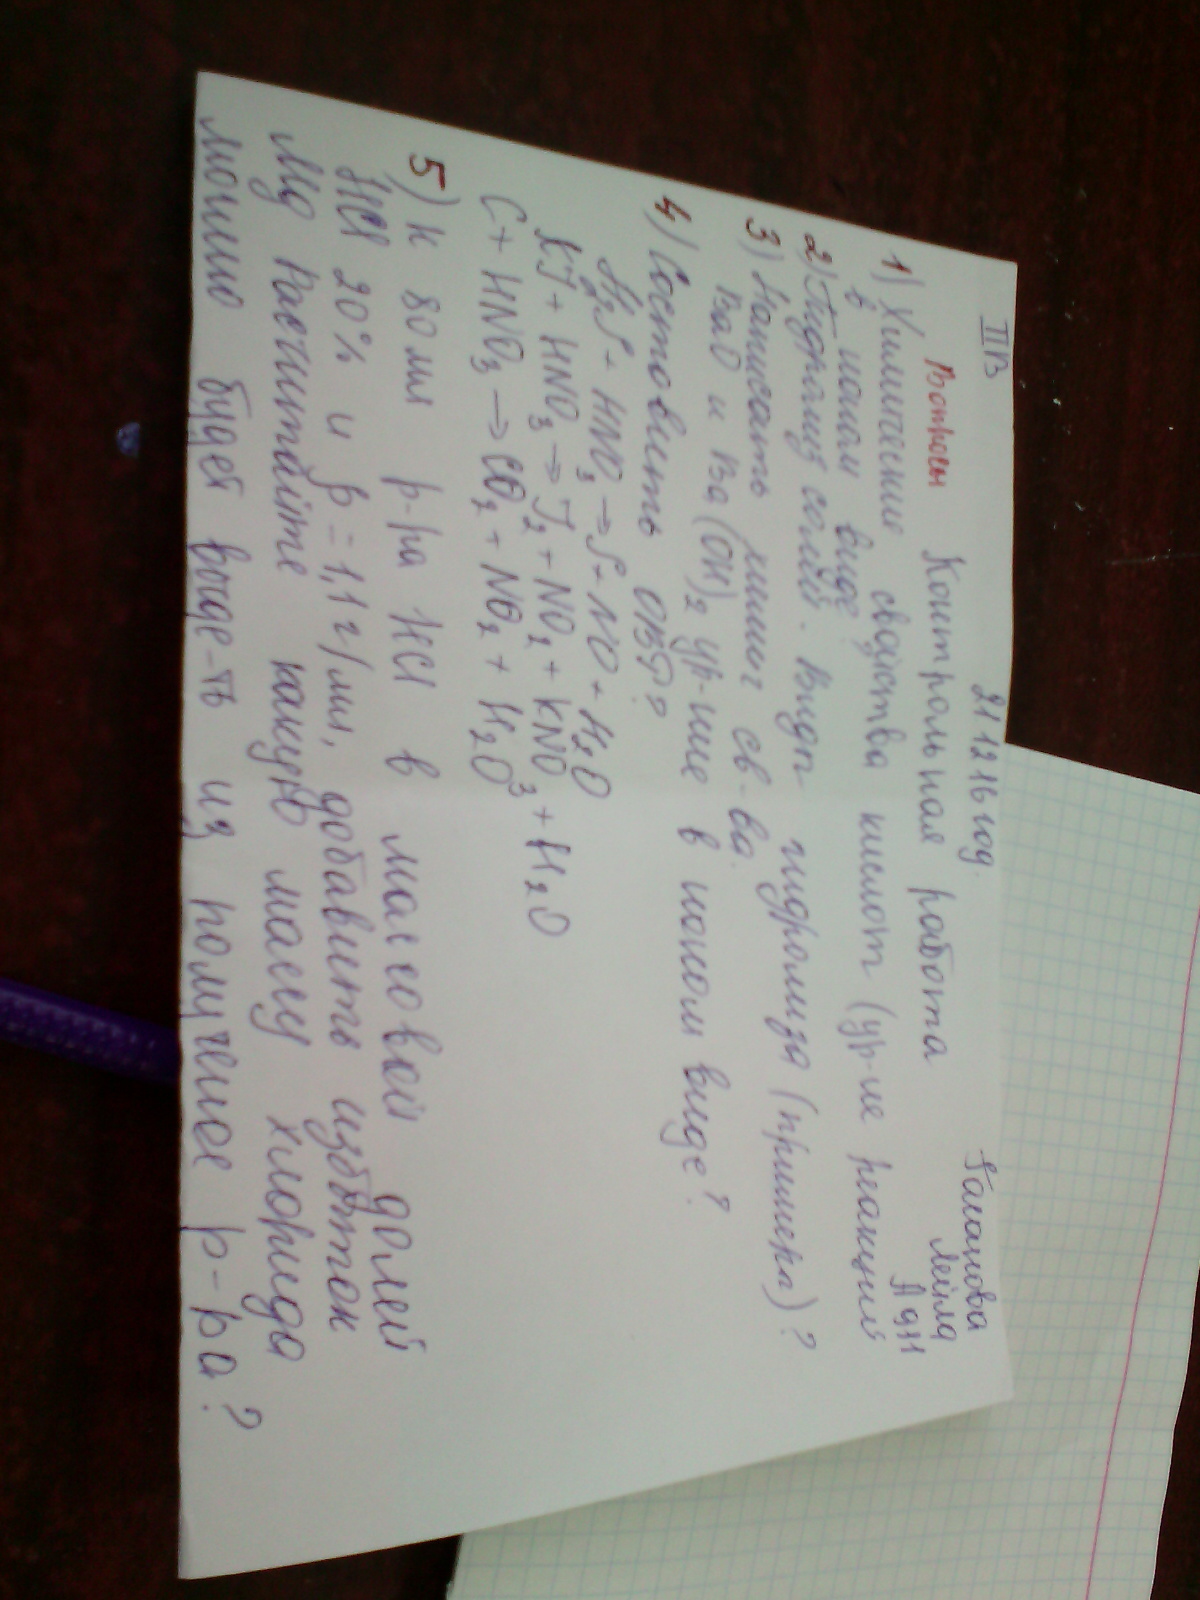 II В
21 12 16 год.
Гасанова
Лейла
А 911
Вопросы Контрольная работа
1) Химические свойства кислот (ур-ие реакции
в ионом виде
2) Гидролиз солей. Виды гидролиза (примеры)?
3) Написать химич св-ва
BaO и Ba(OH)₂ ур-ние в ионом виде?
4) Составить ОВР?
H₂S + HNO₃ → S + NO + H₂O
KJ + HNO₃ → J₂ + NO₂ + KNO₃ + H₂O
C + HNO₃ → CO₂ + NO₂ + H₂O
5) К 80 мл р-ра HCl в массовой долей
HCl 20% и p = 1,1 г/мл, добавить избыток
Mg Расчитайте какую массу хлорида
можно будет выде-ть из получение р-ра?